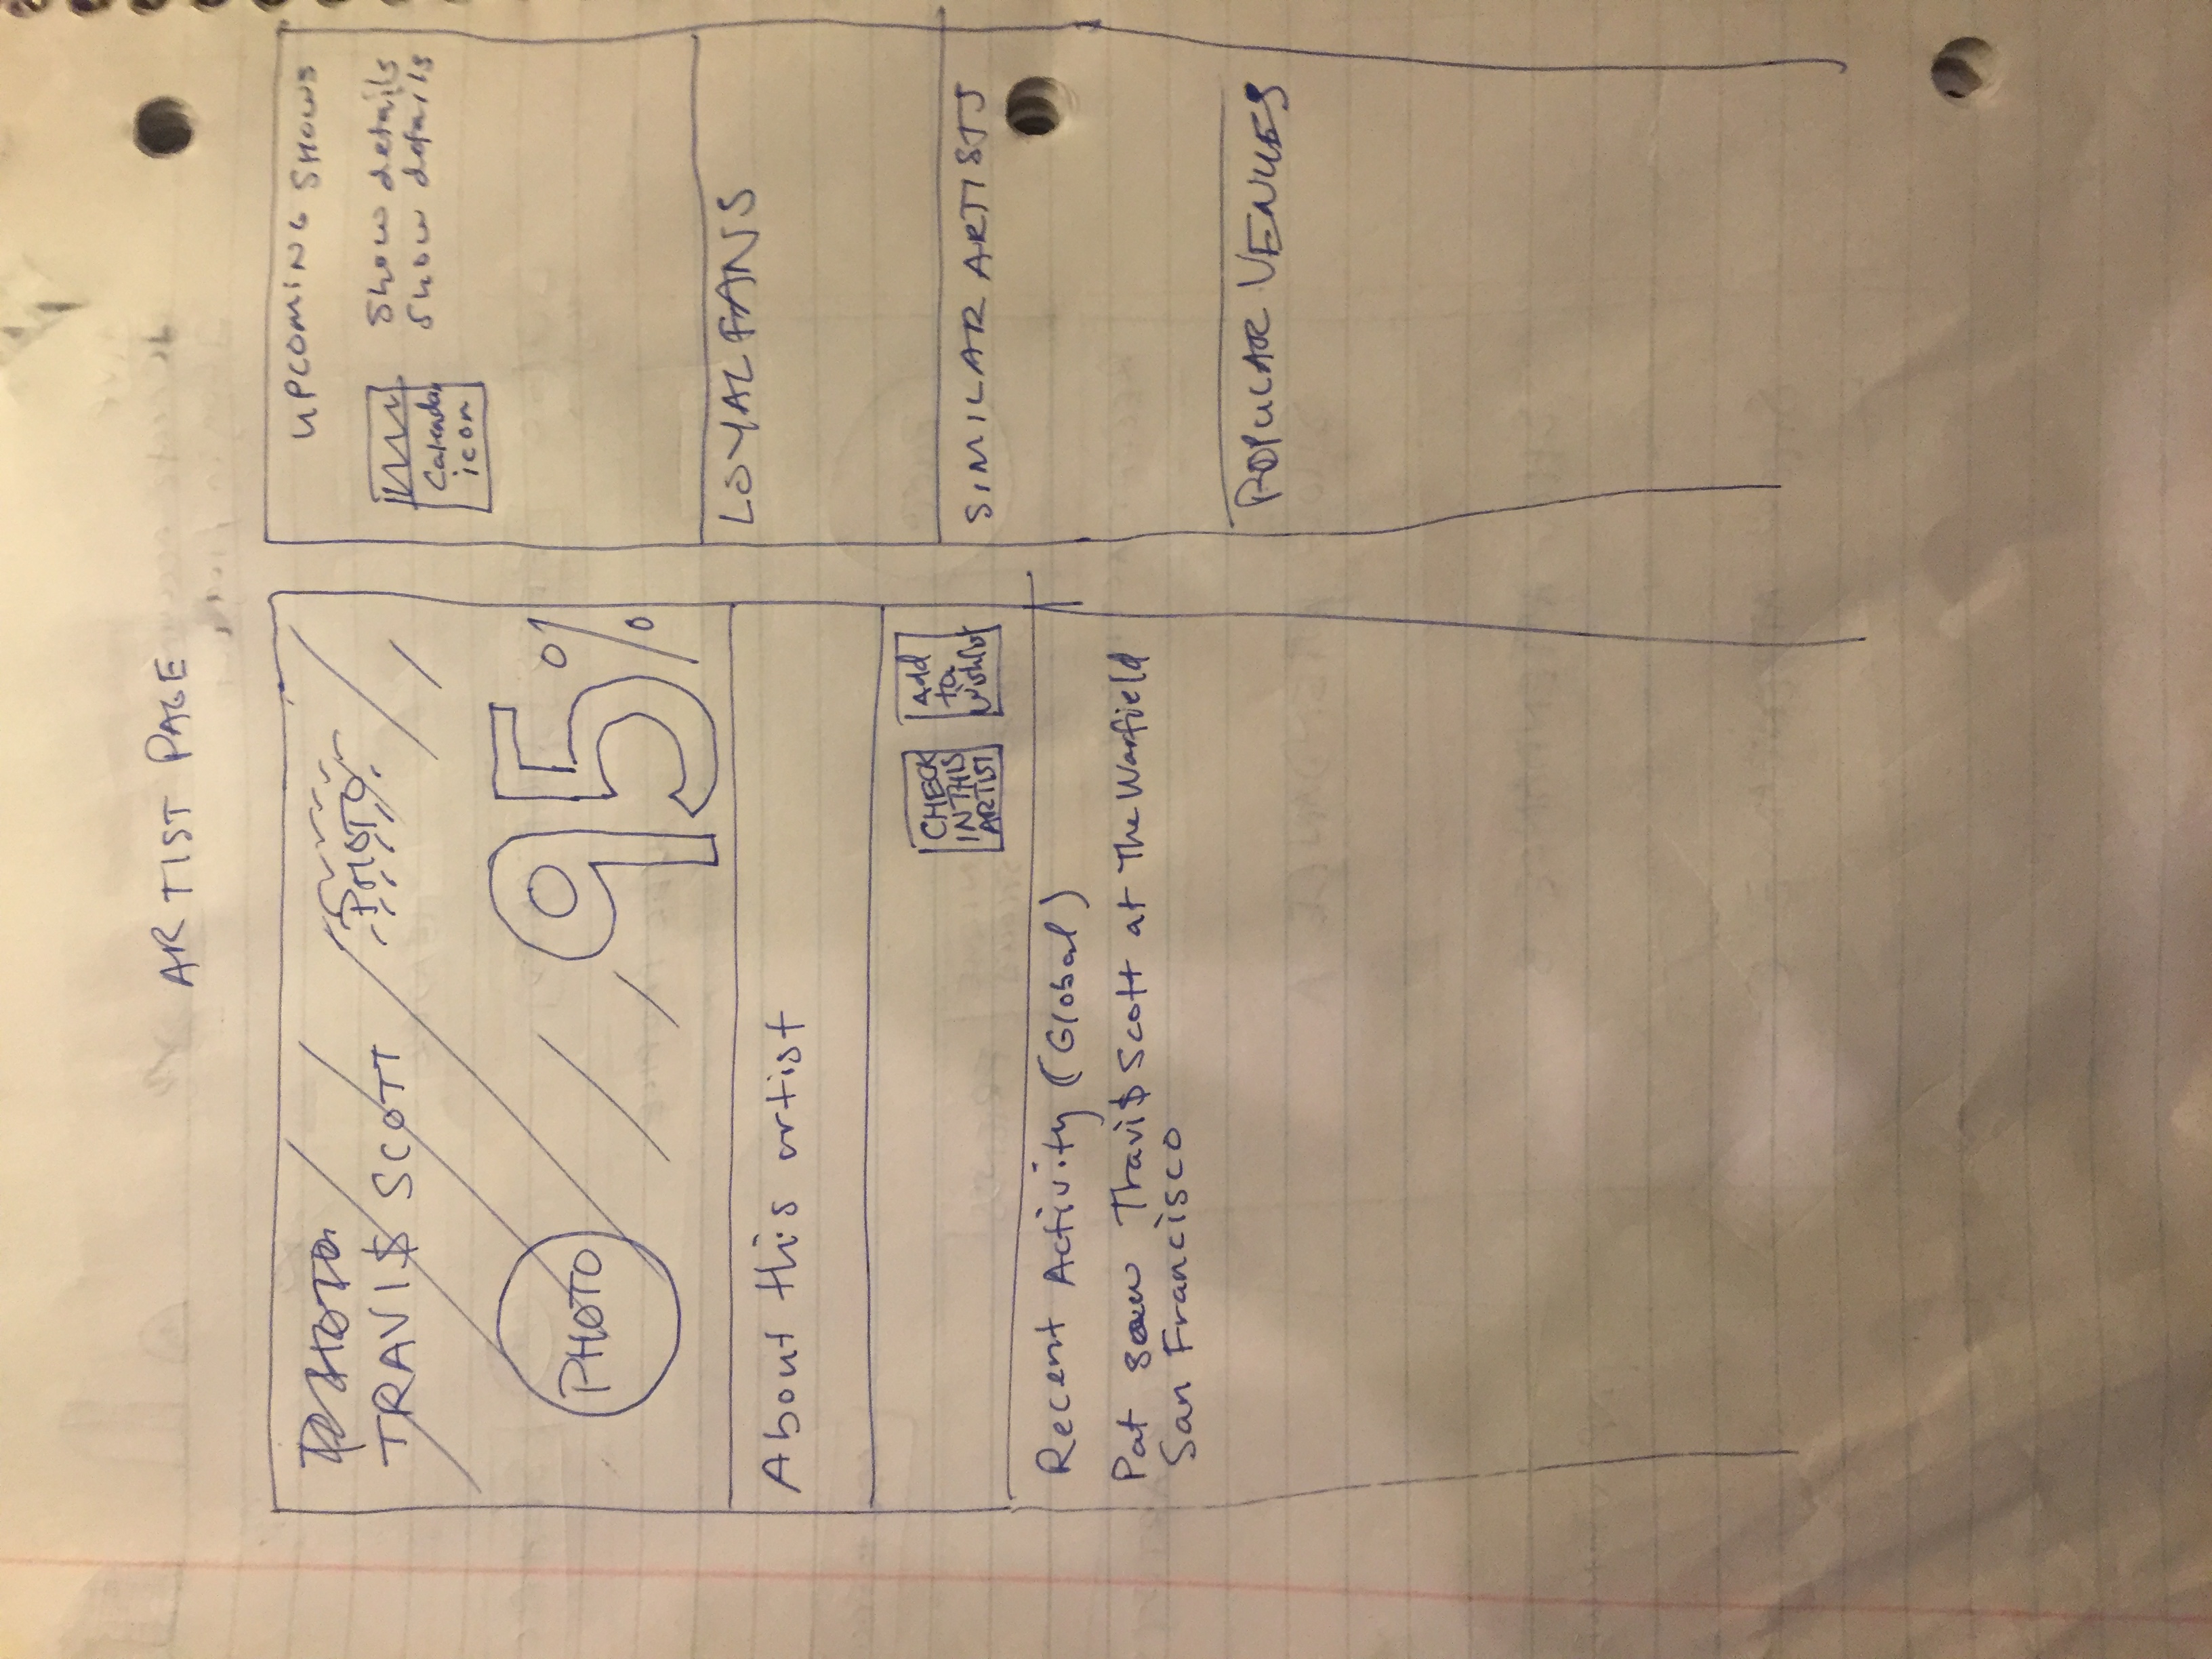 ARTIST PAGE
PHOTO
TRAVI$ SCOTT
PHOTO
PHOTO
95%
About this artist
CHECK
IN THIS
ARTIST
Add
to
wishlist
Recent Activity (Global)
Pat saw Travi$ Scott at The Warfield
San Francisco
UPCOMING SHOWS
Calendar
icon
Show details
Show details
LOYAL FANS
SIMILAR ARTISTS
POPULAR VENUES